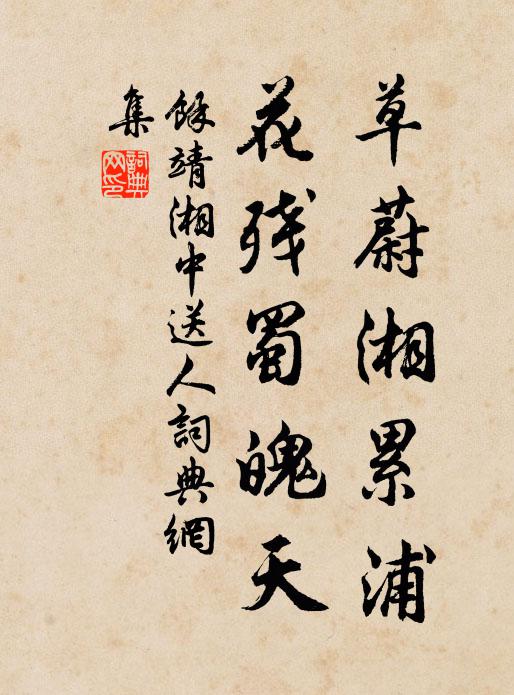 草蔚湘累浦
花残蜀魄天
餘靖湘中送人詞典網
集
詞典
网印